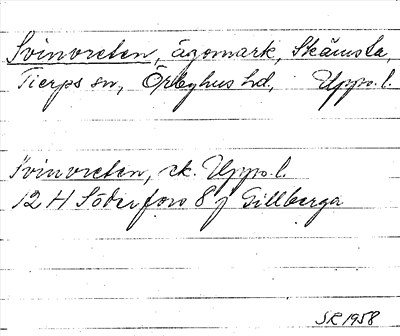 Svinvreten, ägomark, Skämsta,
Tierps sn, Örbyhus hd., Upps. l.
Svinvreten, rk. Upps. l.
12 H Söderfors 8 j Gillberga
S.R 1958